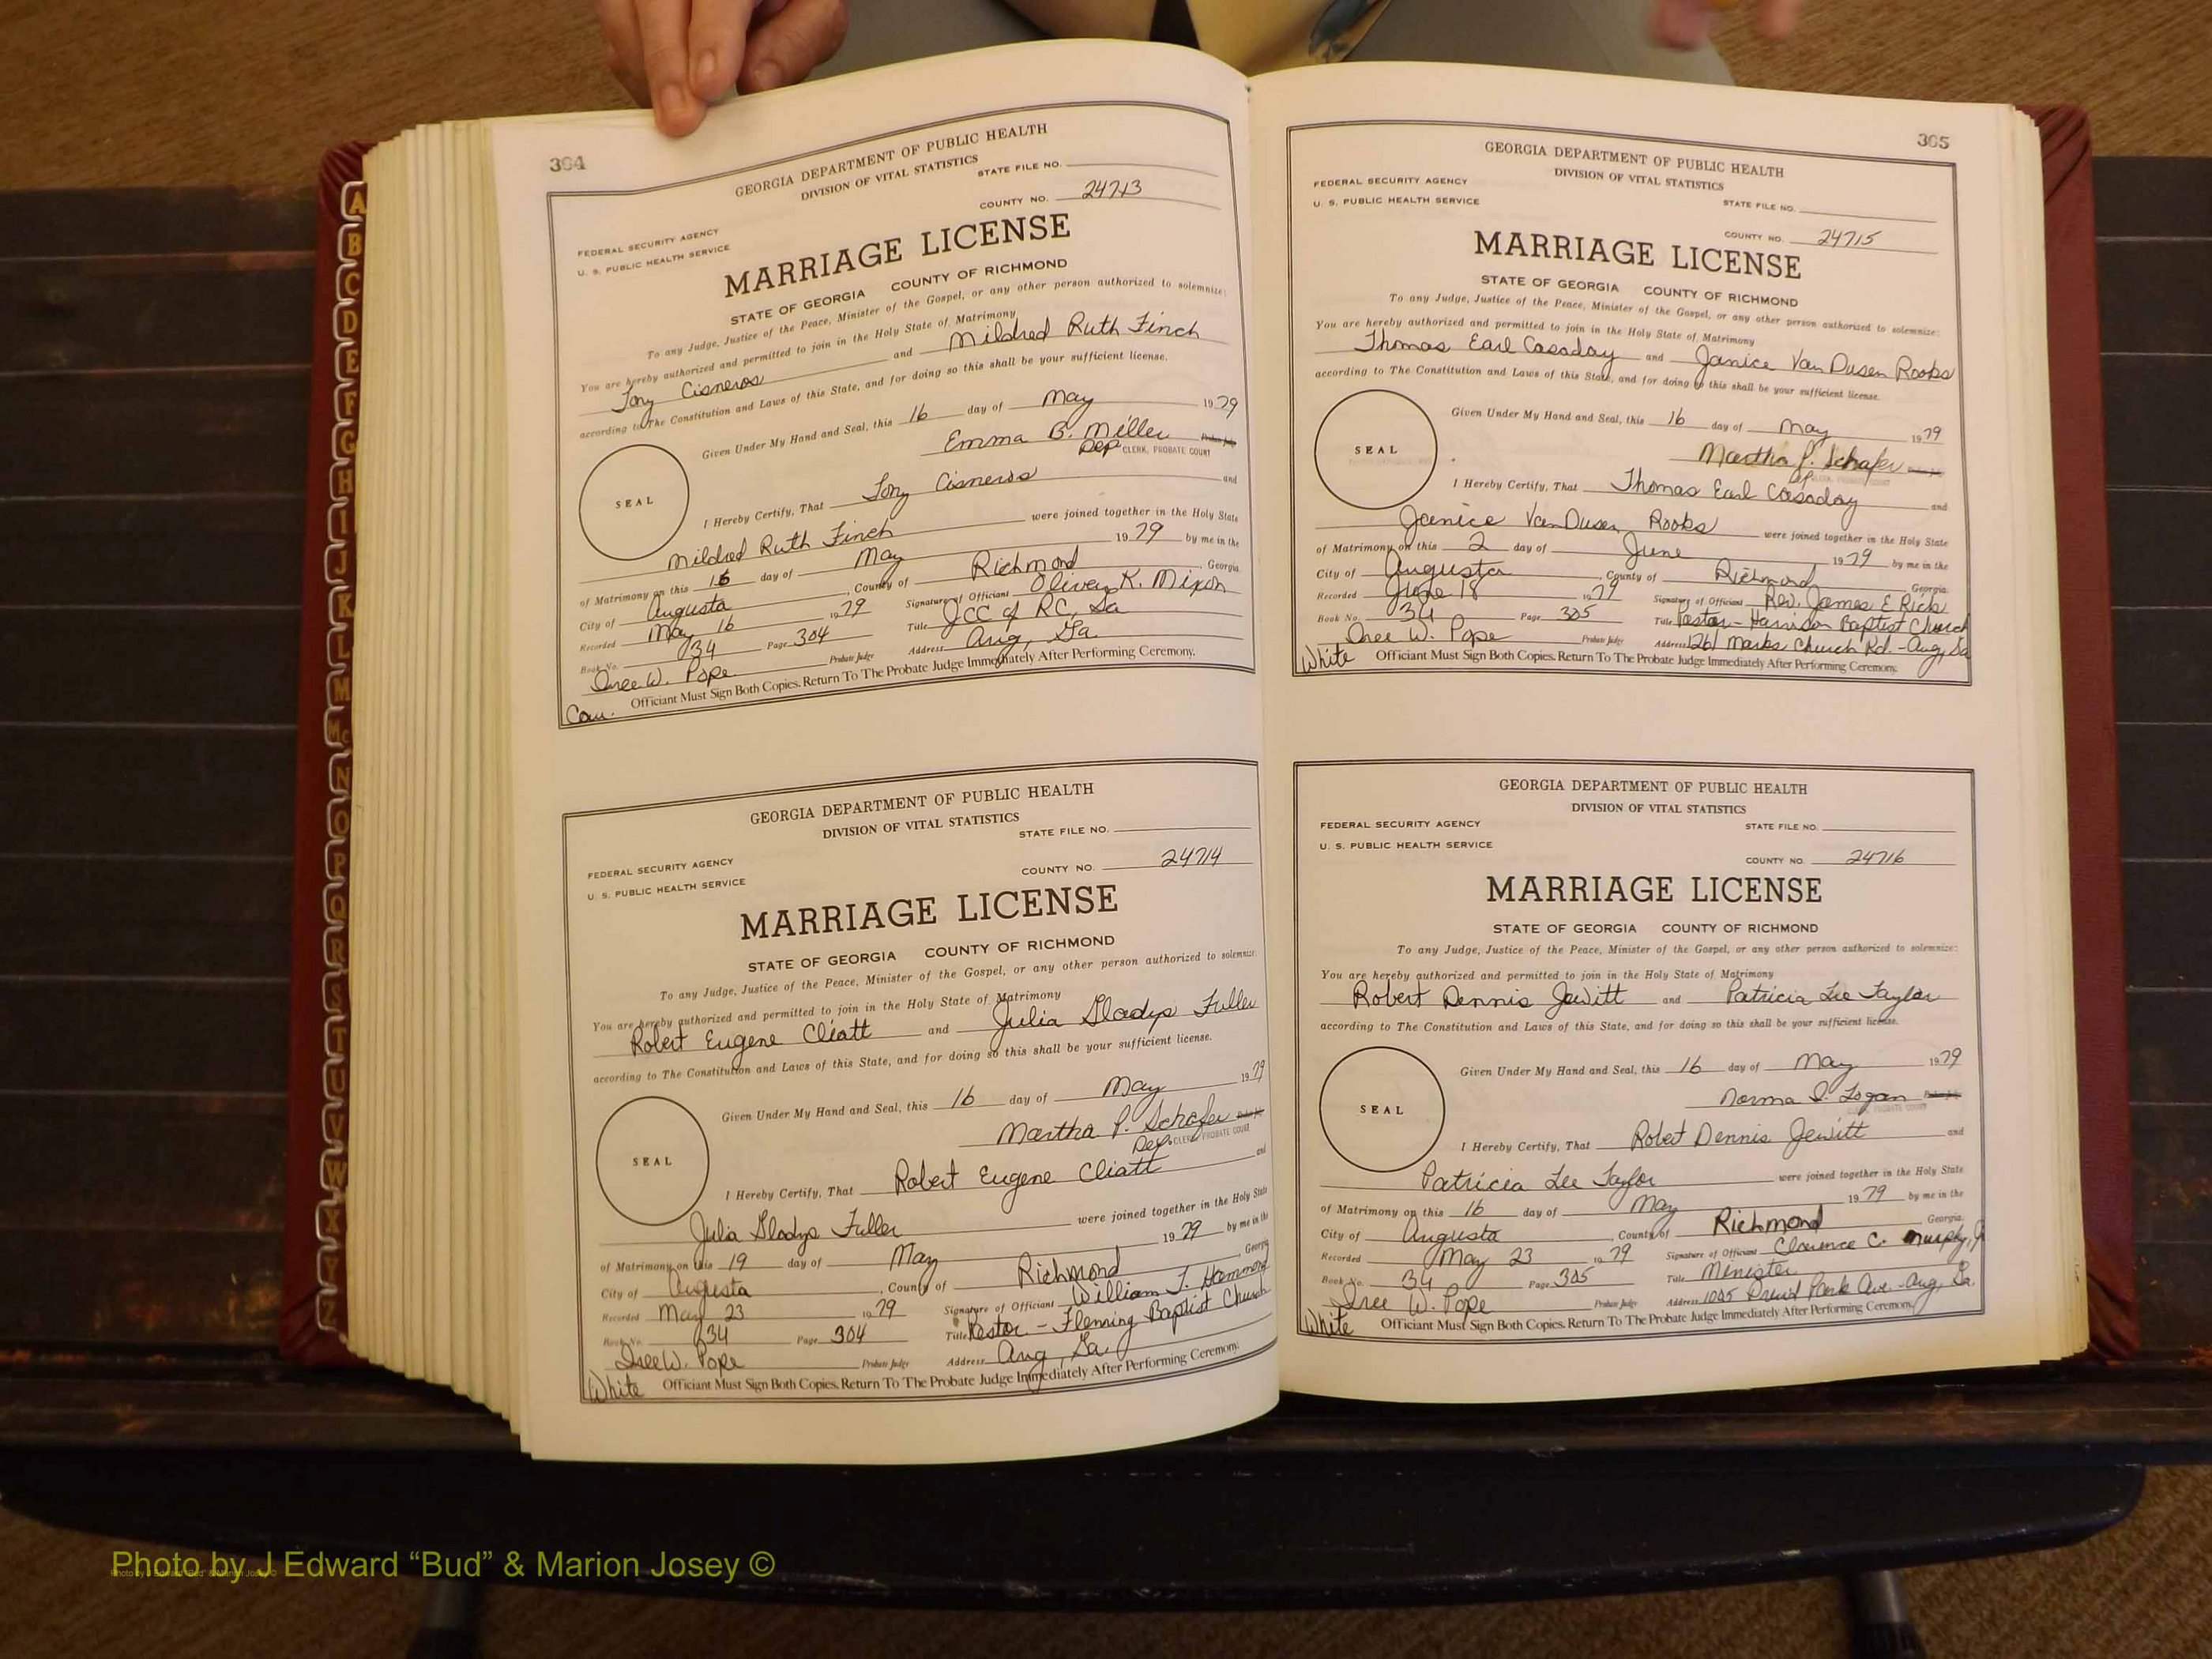 304
GEORGIA DEPARTMENT OF PUBLIC HEALTH
DIVISION OF VITAL STATISTICS
STATE FILE NO.
COUNTY NO. 24713
FEDERAL SECURITY AGENCY
U. S. PUBLIC HEALTH SERVICE
MARRIAGE LICENSE
STATE OF GEORGIA COUNTY OF RICHMOND
To any Judge, Justice of the Peace, Minister of the Gospel, or any other person authorized to solemnize:
You are hereby authorized and permitted to join in the Holy State of Matrimony
Tony Cisneros and Mildred Ruth Finch
according to The Constitution and Laws of this State, and for doing so this shall be your sufficient license.
Given Under My Hand and Seal, this 16 day of May 1979
Emma B. Miller Probate Judge
Dep CLERK, PROBATE COURT
SEAL
I Hereby Certify, That Tony Cisneros and
Mildred Ruth Finch were joined together in the Holy State
of Matrimony on this 16 day of May 1979 by me in the
City of Augusta, County of Richmond, Georgia.
Recorded May 16 1979 Signature of Officiant Oliver K. Mixon
Book No. 34 Page 304 Title JCC of RC, Ga
Inee W. Pope Probate Judge Address Aug, Ga.
Cau. Officiant Must Sign Both Copies. Return To The Probate Judge Immediately After Performing Ceremony.
GEORGIA DEPARTMENT OF PUBLIC HEALTH
DIVISION OF VITAL STATISTICS
STATE FILE NO.
FEDERAL SECURITY AGENCY
U. S. PUBLIC HEALTH SERVICE
COUNTY NO. 24714
MARRIAGE LICENSE
STATE OF GEORGIA COUNTY OF RICHMOND
To any Judge, Justice of the Peace, Minister of the Gospel, or any other person authorized to solemnize:
You are hereby authorized and permitted to join in the Holy State of Matrimony
Robert Eugene Cliatt and Julia Gladys Fuller
according to The Constitution and Laws of this State, and for doing so this shall be your sufficient license.
Given Under My Hand and Seal, this 16 day of May 1979
Martha P. Schafer Probate Judge
Dep CLERK, PROBATE COURT
SEAL
I Hereby Certify, That Robert Eugene Cliatt and
Julia Gladys Fuller were joined together in the Holy State
of Matrimony on this 19 day of May 1979 by me in the
City of Augusta, County of Richmond, Georgia
Recorded May 23 1979 Signature of Officiant William J. Hammond
Book No. 34 Page 304 Title Pastor - Fleming Baptist Church
Inee W. Pope Probate Judge Address Aug, Ga.
White Officiant Must Sign Both Copies. Return To The Probate Judge Immediately After Performing Ceremony.
305
GEORGIA DEPARTMENT OF PUBLIC HEALTH
DIVISION OF VITAL STATISTICS
FEDERAL SECURITY AGENCY
U. S. PUBLIC HEALTH SERVICE
STATE FILE NO.
COUNTY NO. 24715
MARRIAGE LICENSE
STATE OF GEORGIA COUNTY OF RICHMOND
To any Judge, Justice of the Peace, Minister of the Gospel, or any other person authorized to solemnize:
You are hereby authorized and permitted to join in the Holy State of Matrimony
Thomas Earl Casaday and Janice Van Dusen Rooks
according to The Constitution and Laws of this State, and for doing so this shall be your sufficient license.
Given Under My Hand and Seal, this 16 day of May 1979
Martha P. Schafer
CLERK, PROBATE COURT
SEAL
I Hereby Certify, That Thomas Earl Casaday and
Janice VanDusen Rooks were joined together in the Holy State
of Matrimony on this 2 day of June 1979 by me in the
City of Augusta, County of Richmond, Georgia.
Recorded June 18 1979 Signature of Officiant Rev. James E. Rick
Book No. 34 Page 305 Title Pastor - Harrison Baptist Church
Inee W. Pope Probate Judge Address 1261 Marks Church Rd. - Aug, Ga
White Officiant Must Sign Both Copies. Return To The Probate Judge Immediately After Performing Ceremony.
GEORGIA DEPARTMENT OF PUBLIC HEALTH
DIVISION OF VITAL STATISTICS
FEDERAL SECURITY AGENCY
U. S. PUBLIC HEALTH SERVICE
STATE FILE NO.
COUNTY NO. 24716
MARRIAGE LICENSE
STATE OF GEORGIA COUNTY OF RICHMOND
To any Judge, Justice of the Peace, Minister of the Gospel, or any other person authorized to solemnize:
You are hereby authorized and permitted to join in the Holy State of Matrimony
Robert Dennis Jewitt and Patricia Lee Taylor
according to The Constitution and Laws of this State, and for doing so this shall be your sufficient license.
Given Under My Hand and Seal, this 16 day of May 1979
Norma I. Logan
CLERK, PROBATE COURT
SEAL
I Hereby Certify, That Robet Dennis Jewitt and
Patricia Lee Taylor were joined together in the Holy State
of Matrimony on this 16 day of May 1979 by me in the
City of Augusta, County of Richmond Georgia.
Recorded May 23 1979 Signature of Officiant Clarence C. Murphy, Jr
Book No. 34 Page 305 Title Minister
Inee W. Pope Probate Judge Address 1005 Druid Park Ave. - Aug, Ga.
White Officiant Must Sign Both Copies. Return To The Probate Judge Immediately After Performing Ceremony.
A
B
C
D
E
F
G
H
I
J
K
L
M
Mc
N
O
P
Q
R
S
T
U
V
W
X
Y
Z
Photo by J Edward “Bud” & Marion Josey ©
Photo by J Edward “Bud” & Marion Josey ©